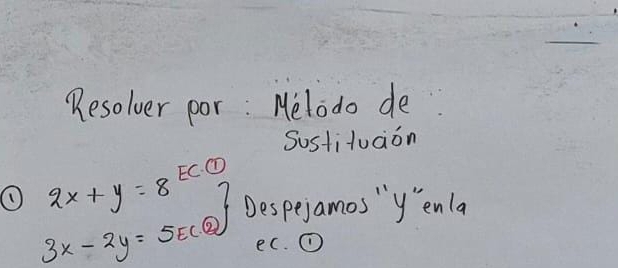 Resolver por : Método de :
Sustitución
① 2x + y = 8 EC.① } Despejamos "y" en la
3x - 2y = 5 EC.② ec. ①